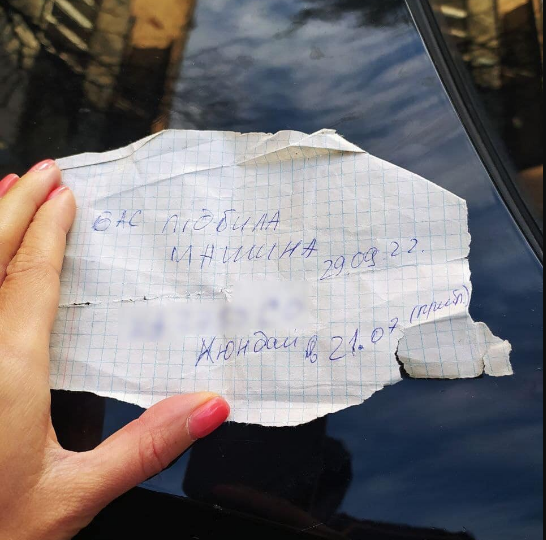 ВАС ПОБИЛА
МАШИНА 29.09.22.
Хюндай в 21.07 (прибл)